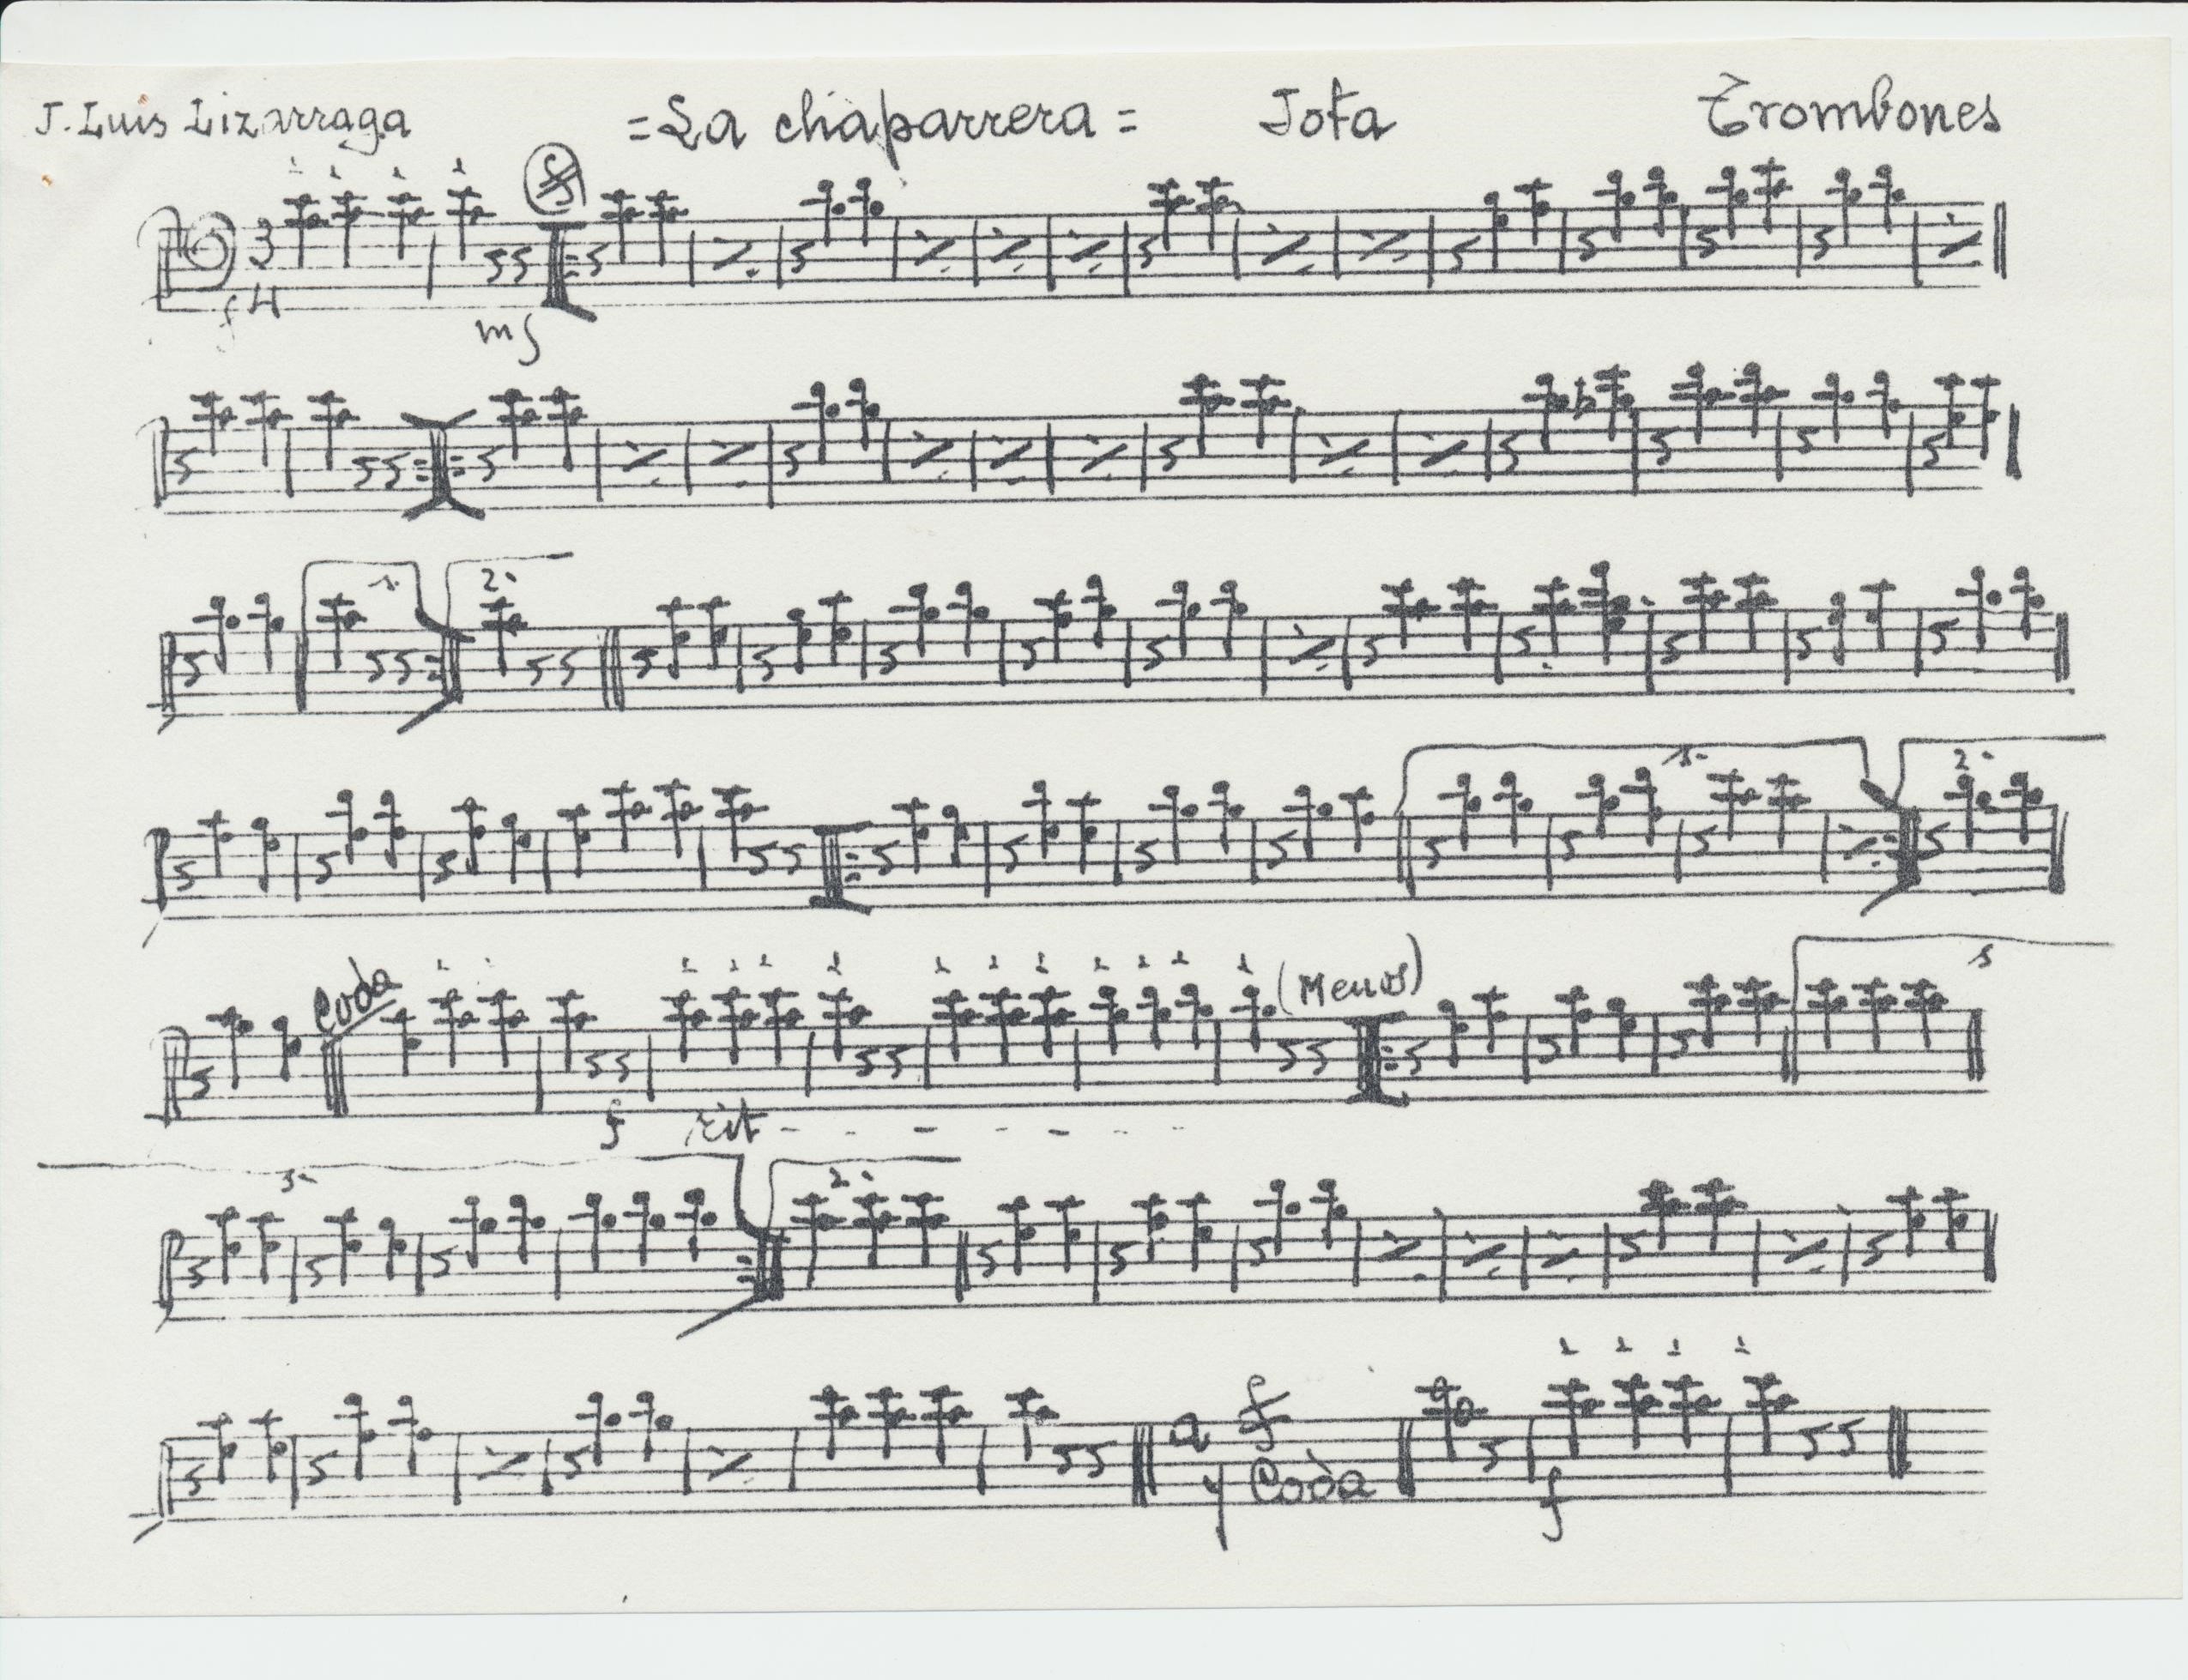 J. Luis Lizarraga = La chaparrera = Jota Trombones
3
4
f
mf
1.
2.
1.
2.
Coda
(Menos)
1
f rit
1.
2.
a
y Coda
f